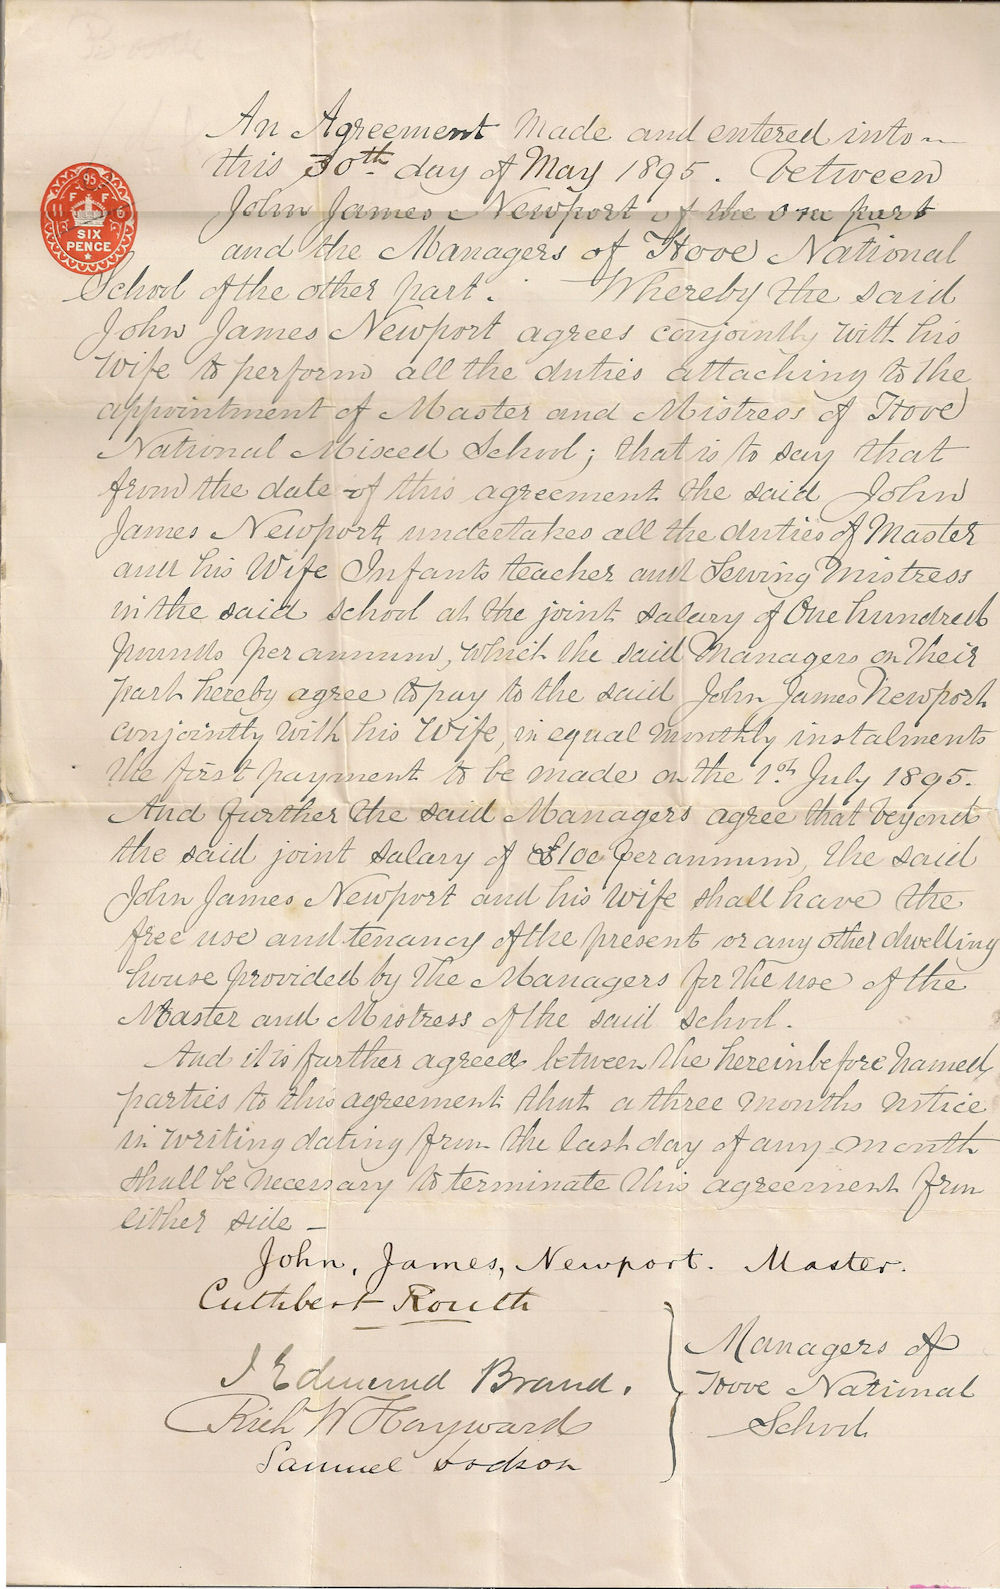 An Agreement made and entered into
this 30th day of May 1895. between
John James Newport of the one part
and the Managers of Hooe National
School of the other part. Whereby the said
John James Newport agrees conjointly with his
Wife to perform all the duties attaching to the
appointment of Master and Mistress of Hooe
National Mixed School; that is to say that
from the date of this agreement the said John
James Newport undertakes all the duties of Master
and his Wife Infants teacher and Sewing Mistress
in the said school at the joint salary of One hundred
pounds per annum, which the said Managers on their
part hereby agree to pay to the said John James Newport
conjointly with his Wife, in equal monthly instalments
the first payment to be made on the 1st July 1895.
And further the said Managers agree that beyond
the said joint salary of £100 per annum, the said
John James Newport and his Wife shall have the
free use and tenancy of the present or any other dwelling
house provided by the Managers for the use of the
Master and Mistress of the said school.
And it is further agreed between the hereinbefore named
parties to this agreement that a three months notice
in writing dating from the last day of any month
shall be necessary to terminate this agreement from
either side –
John, James, Newport. Master.
Cuthbert Routh
J Edmund Brand.
Rich W Hayward
Samuel Hodson
Managers of
Hooe National
School
95
F F
11 6
SIX
PENCE